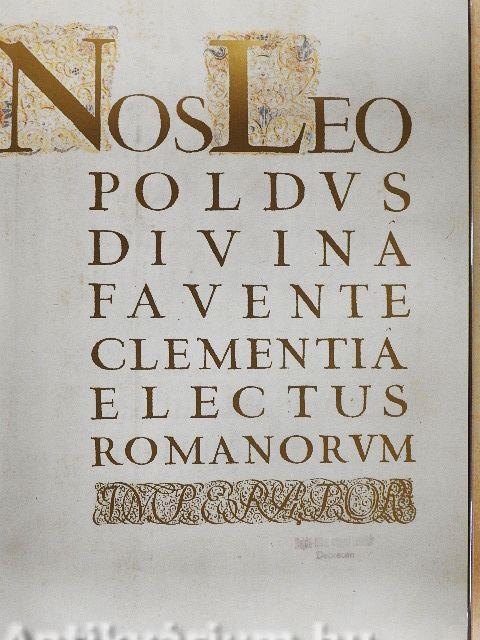 NOS LEO
POLDVS
DIVINÂ
FAVENTE
CLEMENTIÂ
ELECTUS
ROMANORVM
IMPERATOR
Debrecen
Antikvárium.hu